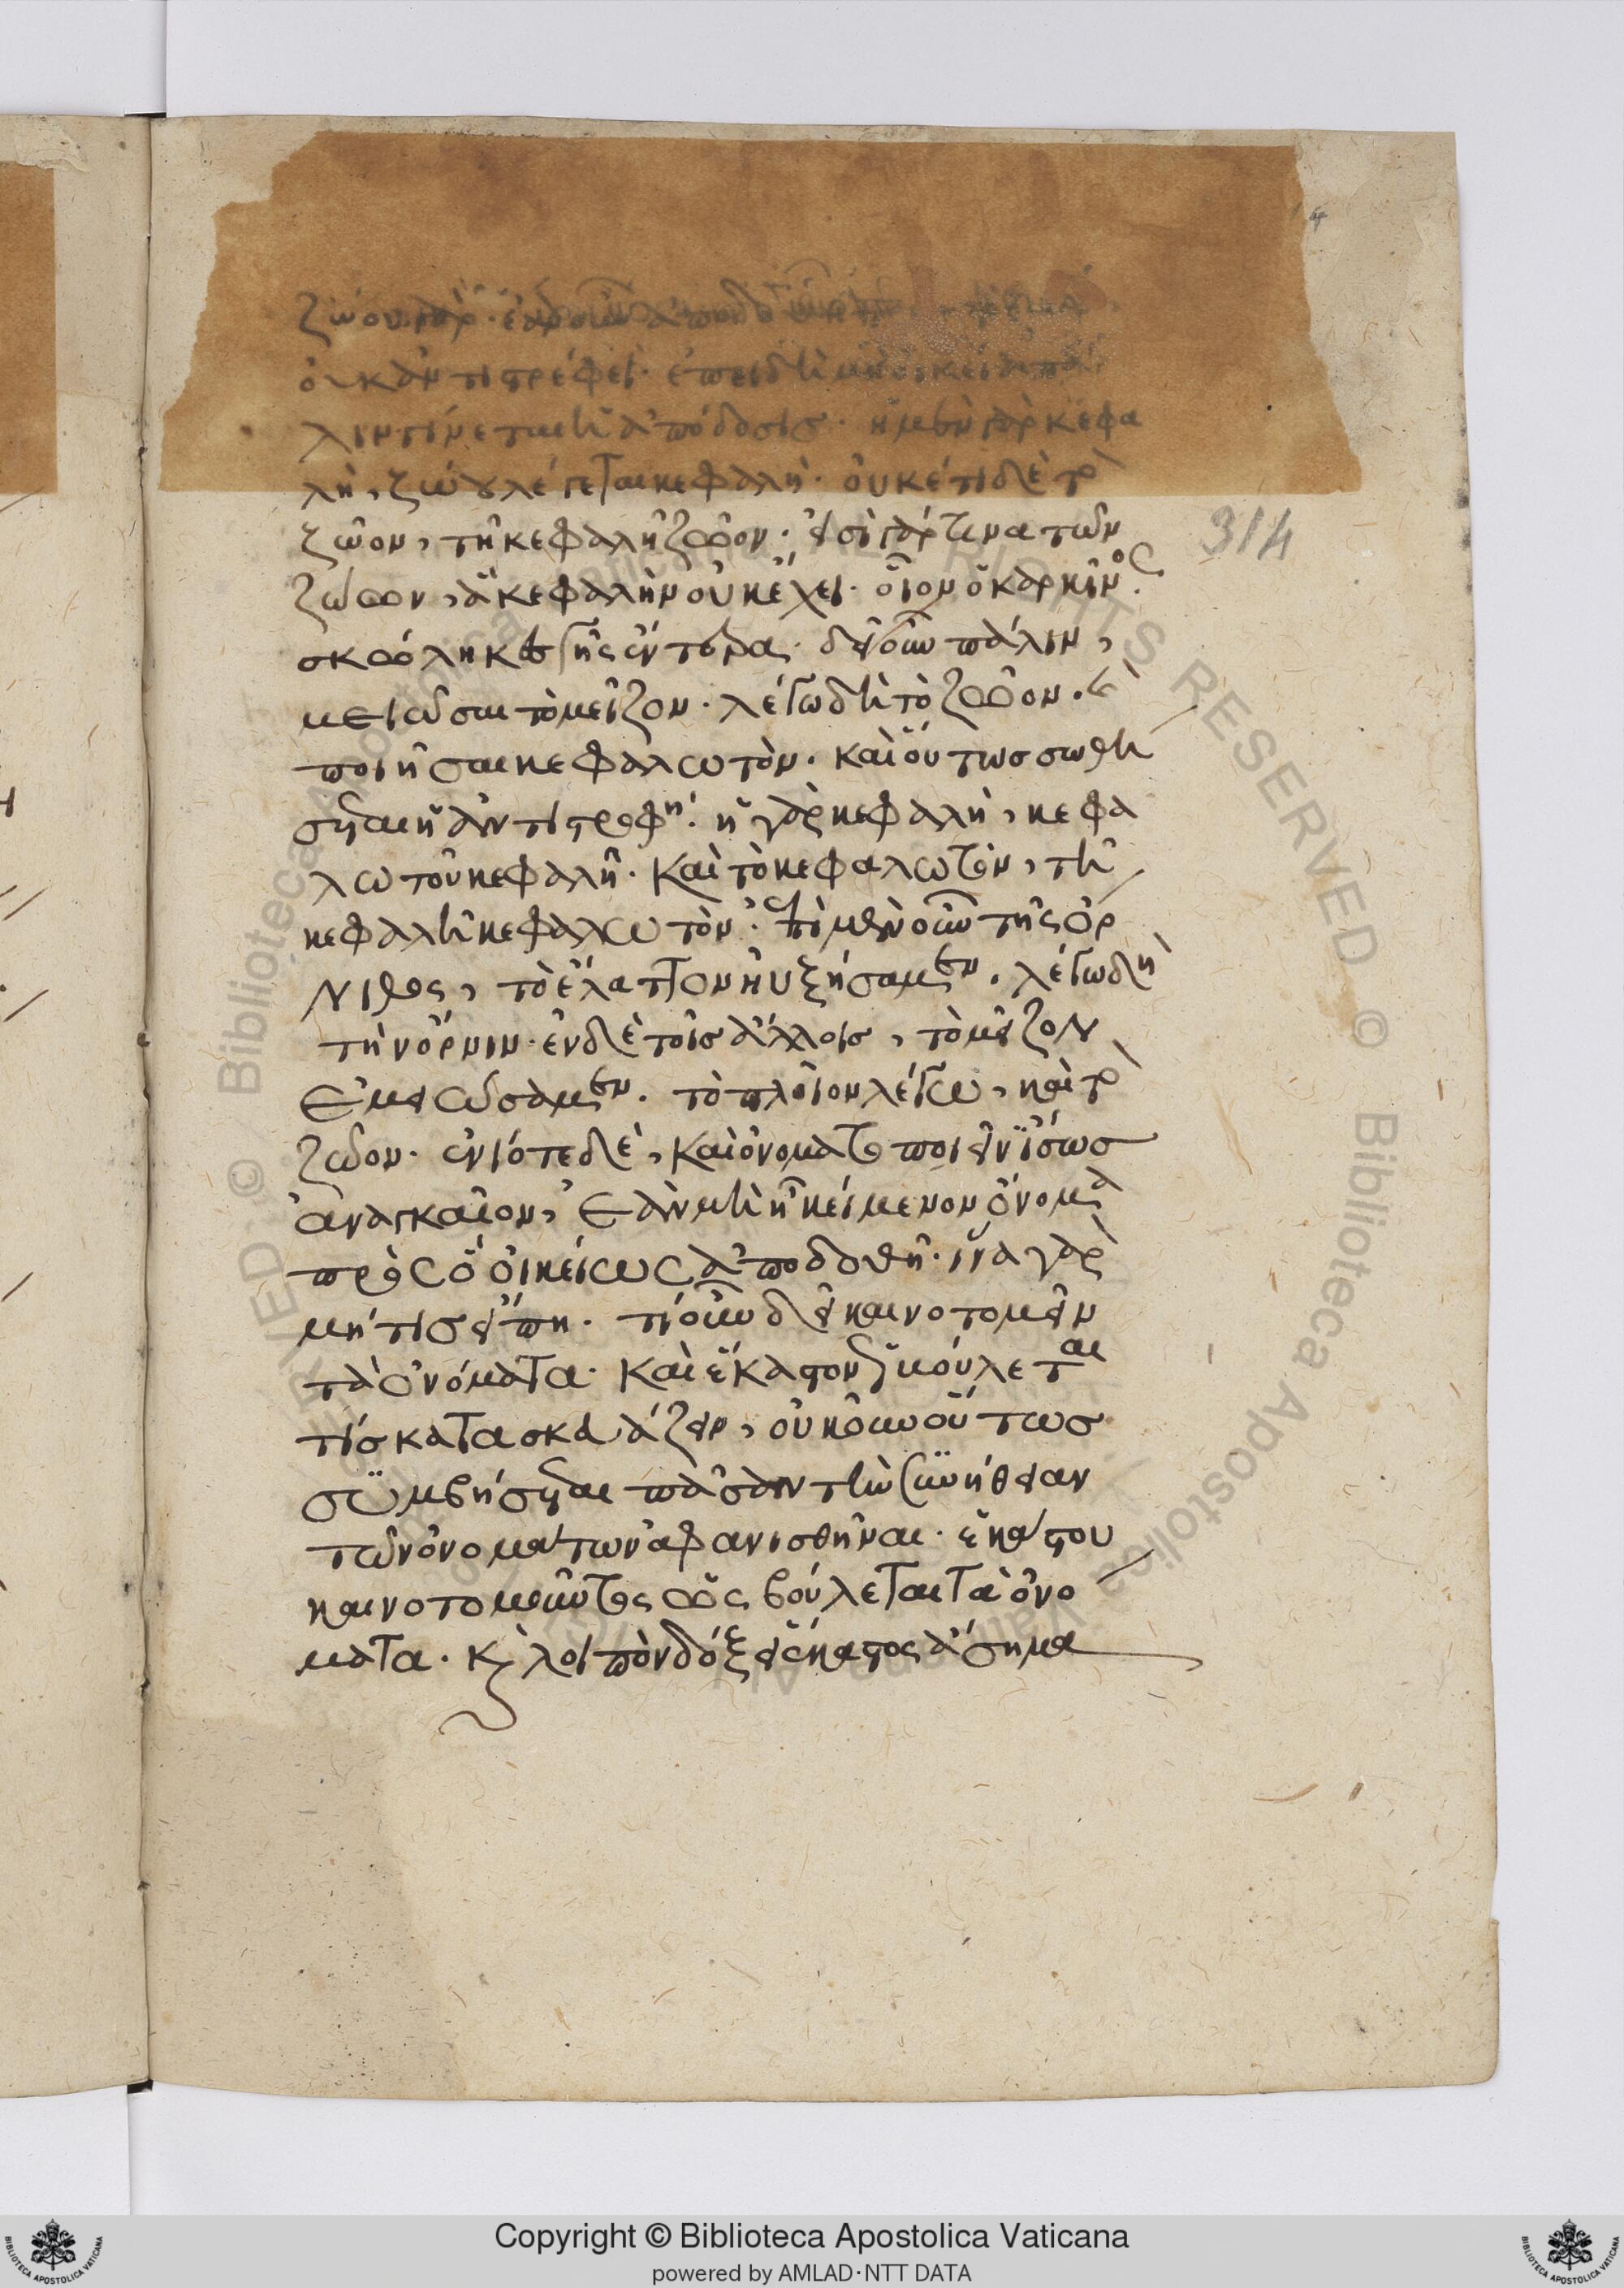 ζώου γάρ. ἐὰν οὖν
οὐκ ἀντιστρέφει. ἐπειδὴ μὴ οἰκεία πά
λιν γίνεται ἡ ἀπόδοσις. ἡ μὲν γὰρ κεφα
λὴ, ζώου λέγεται κεφαλή. οὐκέτι δὲ τὸ
ζῶον, τῆ κεφαλῆ ζῶον. εἰσὶ γάρ τινα τῶν
ζώων, ἃ κεφαλὴν οὐκ ἔχει. οἷον ὁ καρκίνος.
σκώληκες τῆς ἐντομάς. δεῖ οὖν πάλιν,
μειῶσαι τὸ μεῖζον. λέγω δὴ τὸ ζῶον. καὶ
ποιῆσαι κεφαλωτόν. καὶ οὕτως σωθή
σεται ἡ ἀντιστροφή. ἡ γὰρ κεφαλὴ, κεφα
λωτοῦ κεφαλή. καὶ τὸ κεφαλωτὸν, τῆ
κεφαλῆ κεφαλωτόν. ἐπὶ μὲν οὖν τῆς ὄρ
νιθος, τὸ ἔλαττον ηὐξήσαμεν. λέγω δὴ
τὴν ὄρνιν. ἐν δὲ τοῖς ἄλλοις, τὸ μεῖζον
ἐμειώσαμεν. τὸ πλοῖον λέγω, καὶ τὸ
ζῶον. ἐνίοτε δὲ, καὶ ὀνοματοποιεῖν ἴσως
ἀναγκαῖον, ἐὰν μὴ ἦ κείμενον ὄνομα
πρὸς ὃ οἰκείως ἀποδοθῆ. ἵνα γὰρ
μή τις εἴπη. τί οὖν δεῖ καινοτομεῖν
τὰ ὀνόματα. καὶ ἕκαστον ὃ βούλεται
τίς κατασκευάζειν, οὐκοῦν οὕτως
συμβήσεται πᾶσαν τὴν συνήθειαν
τῶν ὀνομάτων ἀφανισθῆναι. ἑκάστου
καινοτομοῦντος ὡς βούλεται τὰ ὀνό
ματα. καὶ λοιπὸν δόξει ἕκαστος ἄσημα
314
Copyright © Biblioteca Apostolica Vaticana
powered by AMLAD·NTT DATA